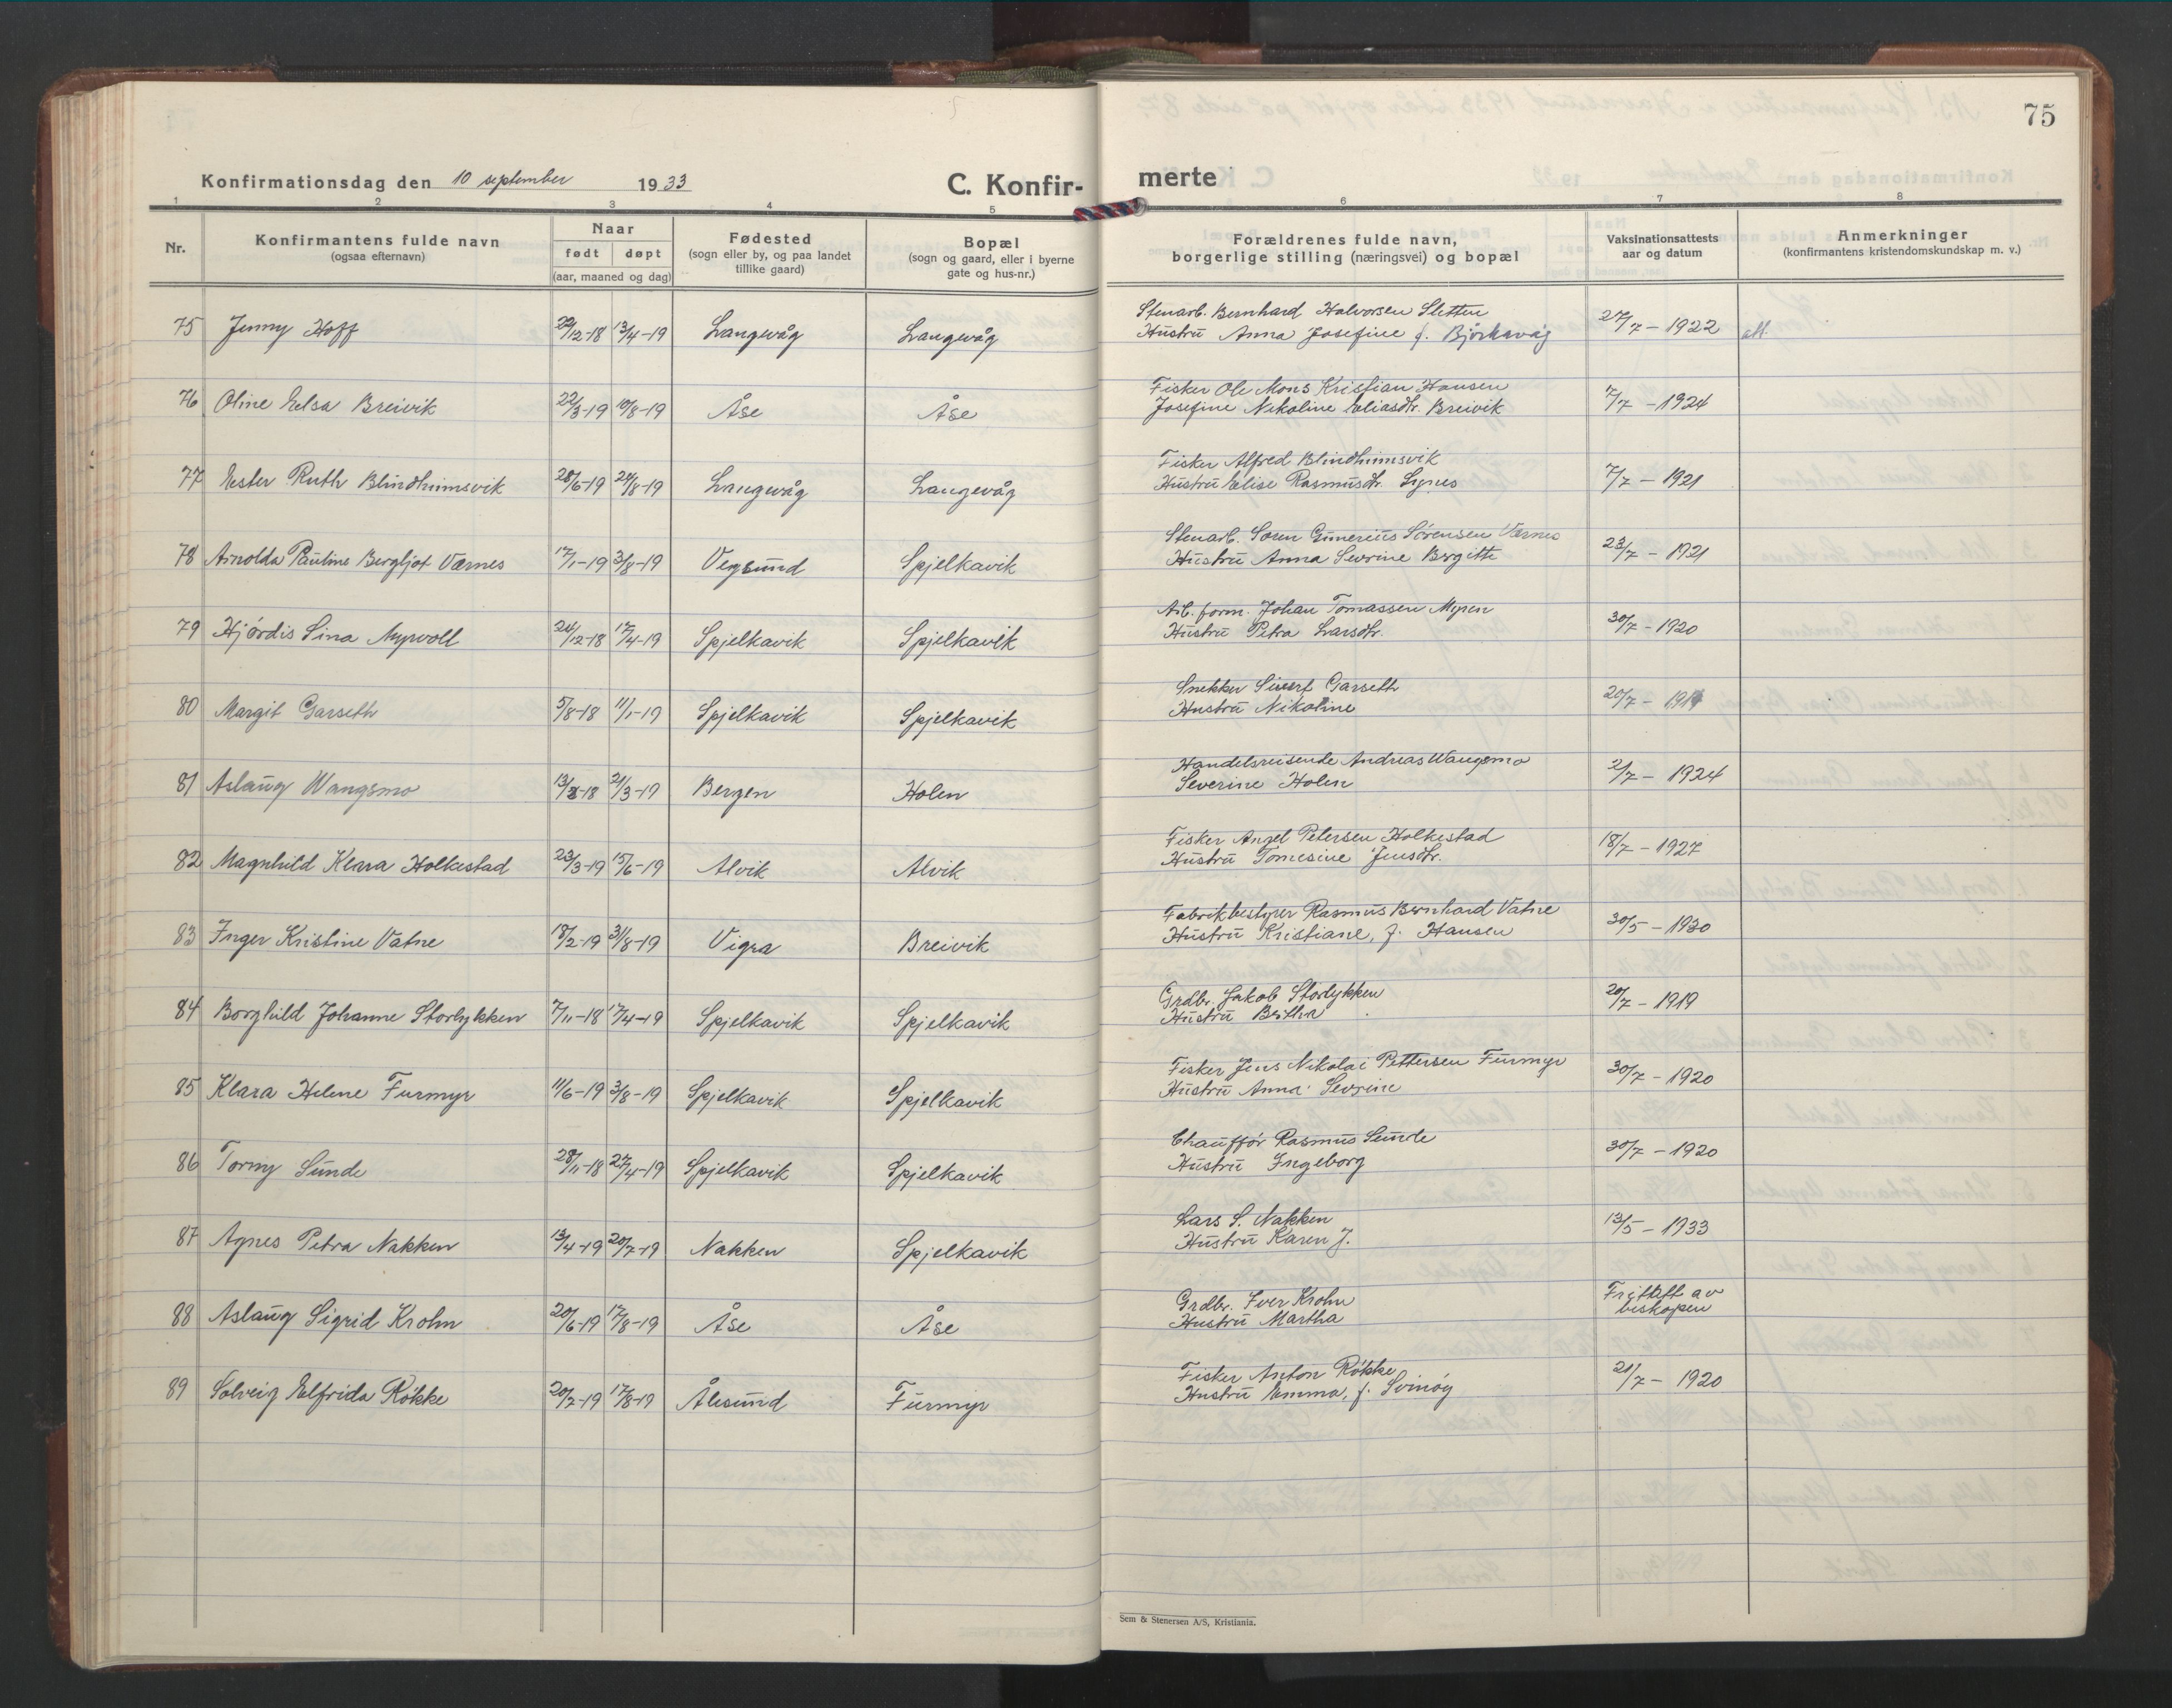 75
Konfirmationsdag den 10 september 1933
C. Konfir-merte
1 2 3 4 5 6 7 8
Nr.
Konfirmantens fulde navn
(ogsaa efternavn)
Naar
født døpt
(aar, maaned og dag)
Fødested
(sogn eller by, og paa landet
tillike gaard)
Bopæl
(sogn og gaard, eller i byerne
gate og hus-nr.)
Forældrenes fulde navn,
borgerlige stilling (næringsvei) og bopæl
Vaksinationsattests
aar og datum
Anmerkninger
(konfirmantens kristendomskundskap m. v.)
75 Jenny Hoff 22/12-18 13/4-19 Langevåg Langevåg
Stenarb. Bernhard Halvorsen Sletten
Hustru Anna Josefine f. Bjørkavåg
27/7 - 1922 att.
76 Oline Elsa Breivik 22/3-19 10/8-19 Åse Åse
Fisker Ole Mons Kristian Hansen
Josefine Nikoline Eliasdtr. Breivik
7/7 - 1924
77 Ester Ruth Blindheimsvik 28/6-19 24/8-19 Langevåg Langevåg
Fisker Alfred Blindheimsvik
Hustru Elise Rasmusdtr. Signes
7/7 - 1921
78 Arnolda Pauline Bergljot Værnes 17/1-19 3/8-19 Vegsund Spjelkavik
Stenarb. Søren Gunerius Sørensen Værnes
Hustru Anna Sevrine Bergitte
23/7 - 1921
79 Hjørdis Sina Myrvoll 24/12-18 17/4-19 Spjelkavik Spjelkavik
Arb. form. Johan Tomassen Myren
Hustru Petra Larsdtr.
30/7 - 1920
80 Margit Garseth 5/8-18 11/1-19 Spjelkavik Spjelkavik
Snekker Sivert Garseth
Hustru Nikoline
20/7 - 1919
81 Aslaug Wangsmo 13/8-18 21/3-19 Bergen Holen
Handelsreisende Andreas Wangsmo
Severine Holen
2/7 - 1924
82 Magnhild Klara Holkestad 23/3-19 15/6-19 Alvik Alvik
Fisker Angel Petersen Holkestad
Hustru Tomesine Jensdtr.
18/7 - 1927
83 Inger Kristine Vatne 18/2-19 31/8-19 Vigra Breivik
Fabrikbestyrer Rasmus Bernhard Vatne
Hustru Kristiane, f. Hansen
30/5 - 1930
84 Borghild Johanne Storlykken 7/11-18 17/4-19 Spjelkavik Spjelkavik
Grdbr. Jakob Storlykken
Hustru Britha
20/7 - 1919
85 Klara Helene Furmyr 11/6-19 3/8-19 Spjelkavik Spjelkavik
Fisker Jens Nikolai Pettersen Furmyr
Hustru Anna Sevrine
30/7 - 1920
86 Torny Sunde 28/11-18 27/4-19 Spjelkavik Spjelkavik
Chauffør Rasmus Sunde
Hustru Ingeborg
30/7 - 1920
87 Agnes Petra Nakken 13/4-19 20/7-19 Nakken Spjelkavik
Lars S. Nakken
Hustru Karen J.
13/5 - 1933
88 Aslaug Sigrid Krohn 20/6-19 17/8-19 Åse Åse
Grdbr. Iver Krohn
Hustru Martha
Fritatt av
biskopen
89 Solveig Elfrida Røkke 20/7-19 17/8-19 Ålesund Furmyr
Fisker Anton Røkke
Hustru Emma, f. Svinøy
21/7 - 1920
Sem & Stenersen A/S, Kristiania.